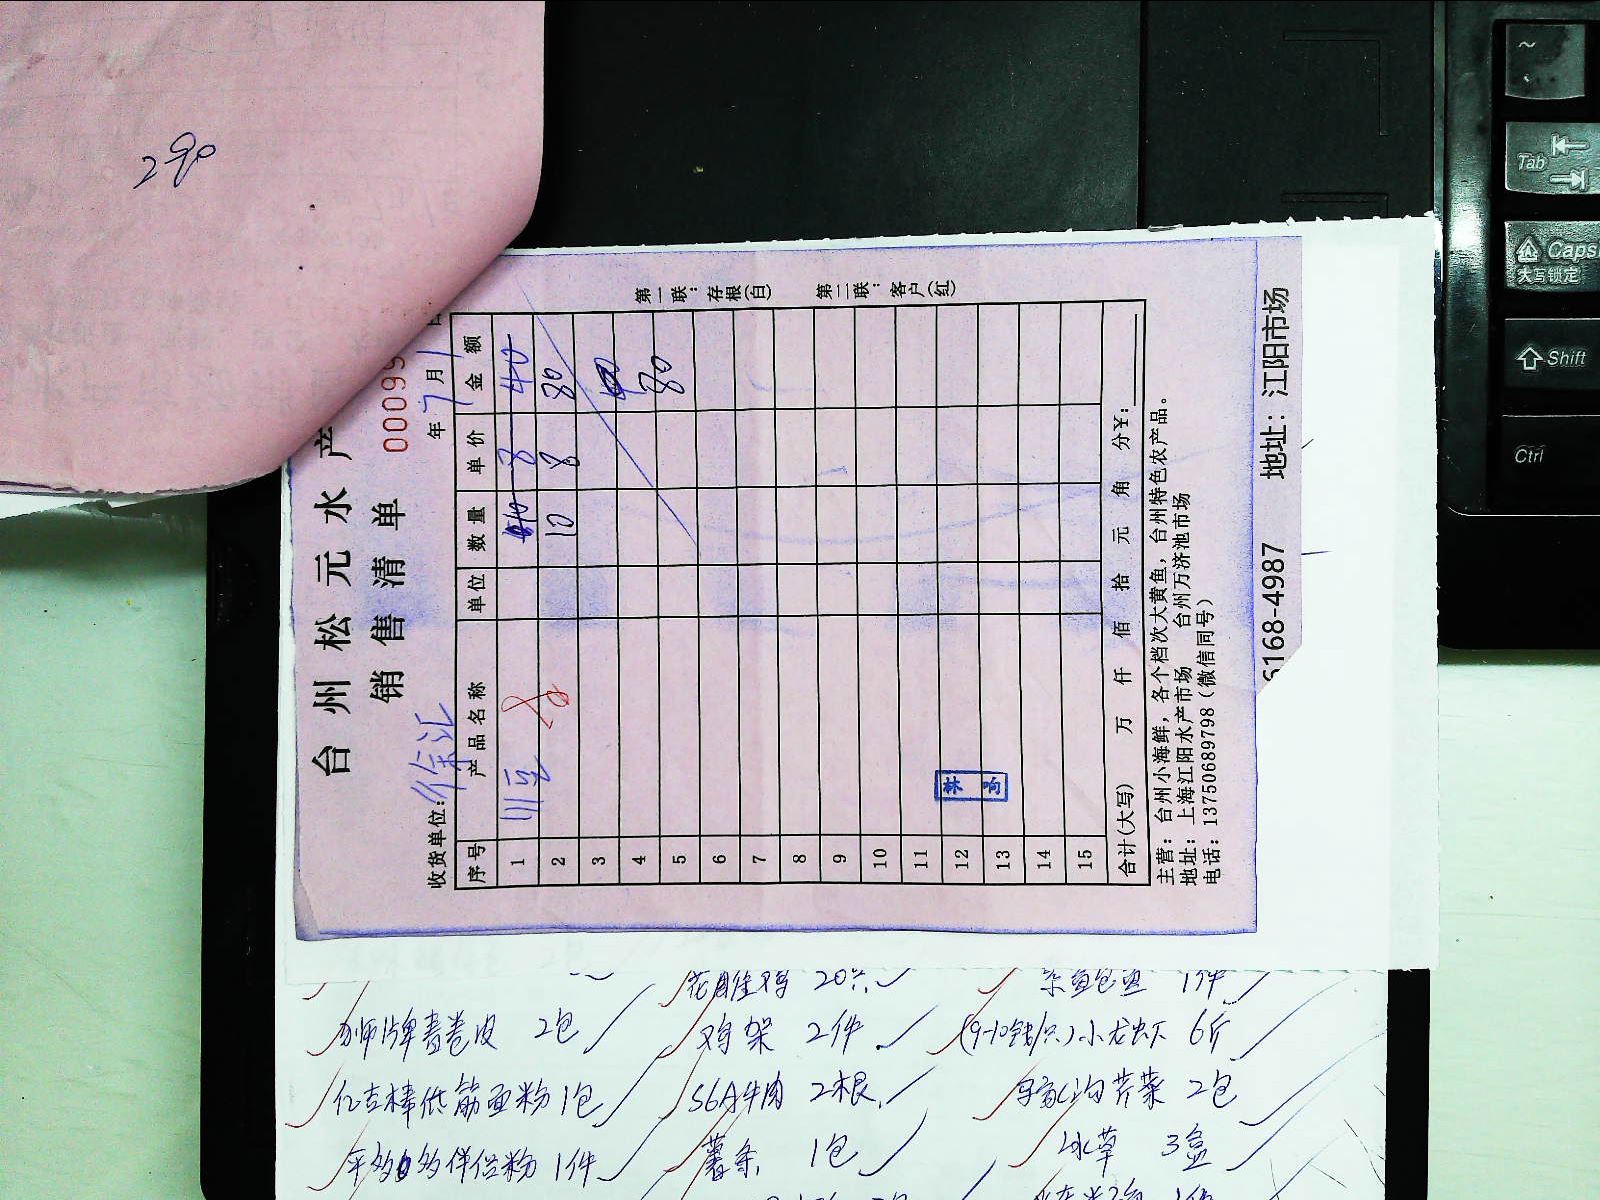 290
台州松元水产
销售清单
00099
收货单位：徐汇
年7月1
序号 产品名称 单位 数量 单价 金额
1 8 40
2 10 8 80
3
4 80
5
6
7
8
9
10
11
12
13
14
15
林响
合计(大写) 万 仟 佰 拾 元 角 分￥：
主营：台州小海鲜，各个档次大黄鱼，台州特色农产品。
地址：上海江阳水产市场 台州万济池市场
电话：13750689798（微信同号）
第一联：存根(白) 第二联：客户(红)
6168-4987 地址：江阳市场
花雕鸡 20只 杂鱼包鱼 1件
2包 鸡架 2件 (9-10钱/只)小龙虾 6斤
低筋面粉 1包 S6A牛肉 2根 芹菜 2包
1件 薯条 1包 冰草 3盒
~
Tab
Caps
大写锁定
Shift
Ctrl